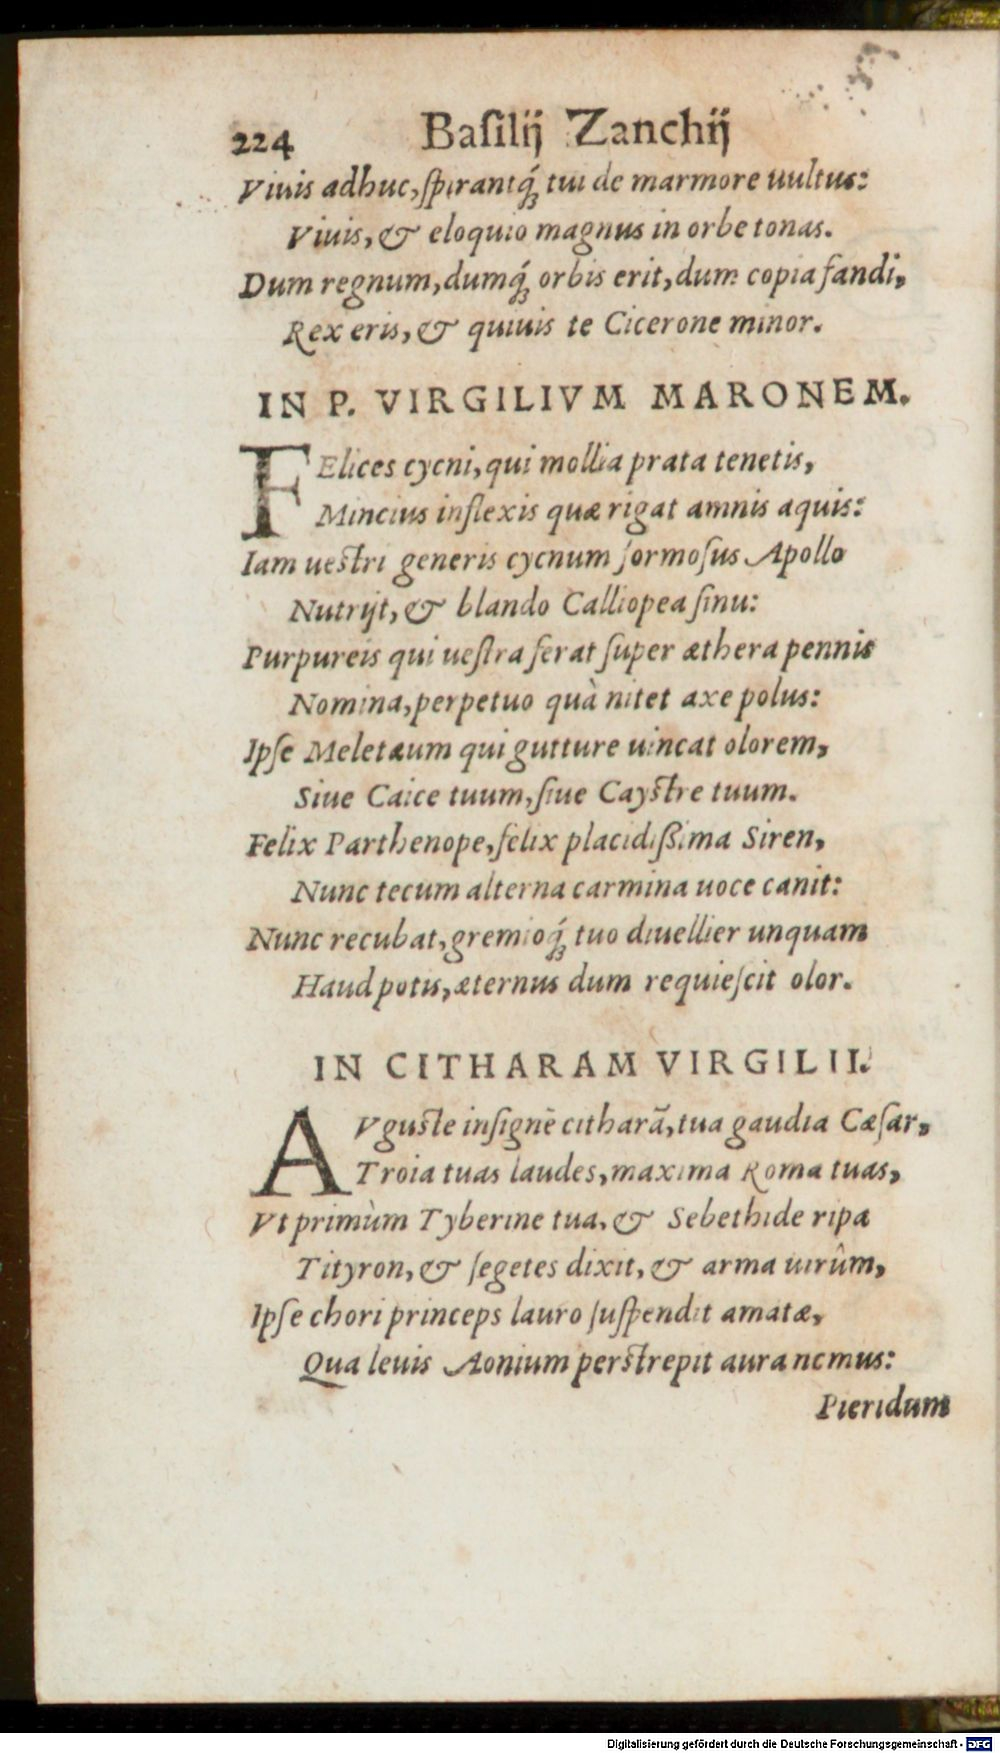 224 Baſilij Zanchij
Viuis adhuc, ſpirantq́; tui de marmore uultus:
Viuis, & eloquio magnus in orbe tonas.
Dum regnum, dumq́; orbis erit, dum copia fandi,
Rex eris, & quiuis te Cicerone minor.
IN P. VIRGILIVM MARONEM.
FElices cycni, qui mollia prata tenetis,
Mincius inflexis quæ rigat amnis aquis:
Iam ueſtri generis cycnum formoſus Apollo
Nutrijt, & blando Calliopea ſinu:
Purpureis qui ueſtra ferat ſuper æthera pennis
Nomina, perpetuo quà nitet axe polus:
Ipſe Meletæum qui gutture uincat olorem,
Siue Caice tuum, ſiue Cayſtre tuum.
Felix Parthenope, felix placidißima Siren,
Nunc tecum alterna carmina uoce canit:
Nunc recubat, gremioq́; tuo diuellier unquam
Haud potis, æternus dum requieſcit olor.
IN CITHARAM VIRGILII.
AVguſte inſignē citharā, tua gaudia Cæſar,
Troia tuas laudes, maxima Roma tuas,
Vt primùm Tyberine tua, & Sebethide ripa
Tityron, & ſegetes dixit, & arma uirûm,
Ipſe chori princeps lauro ſuſpendit amatæ,
Qua leuis Aonium perſtrepit aura nemus:
Pieridum
Digitalisierung gefördert durch die Deutsche Forschungsgemeinschaft - DFG